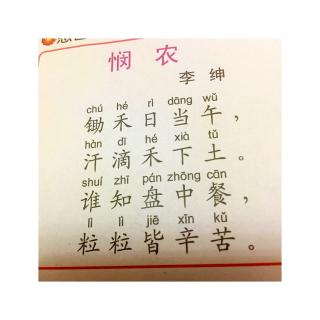 悯农
李绅
chú hé rì dāng wǔ
锄禾日当午，
hàn dī hé xià tǔ
汗滴禾下土。
shuí zhī pán zhōng cān
谁知盘中餐，
lì lì jiē xīn kǔ
粒粒皆辛苦。